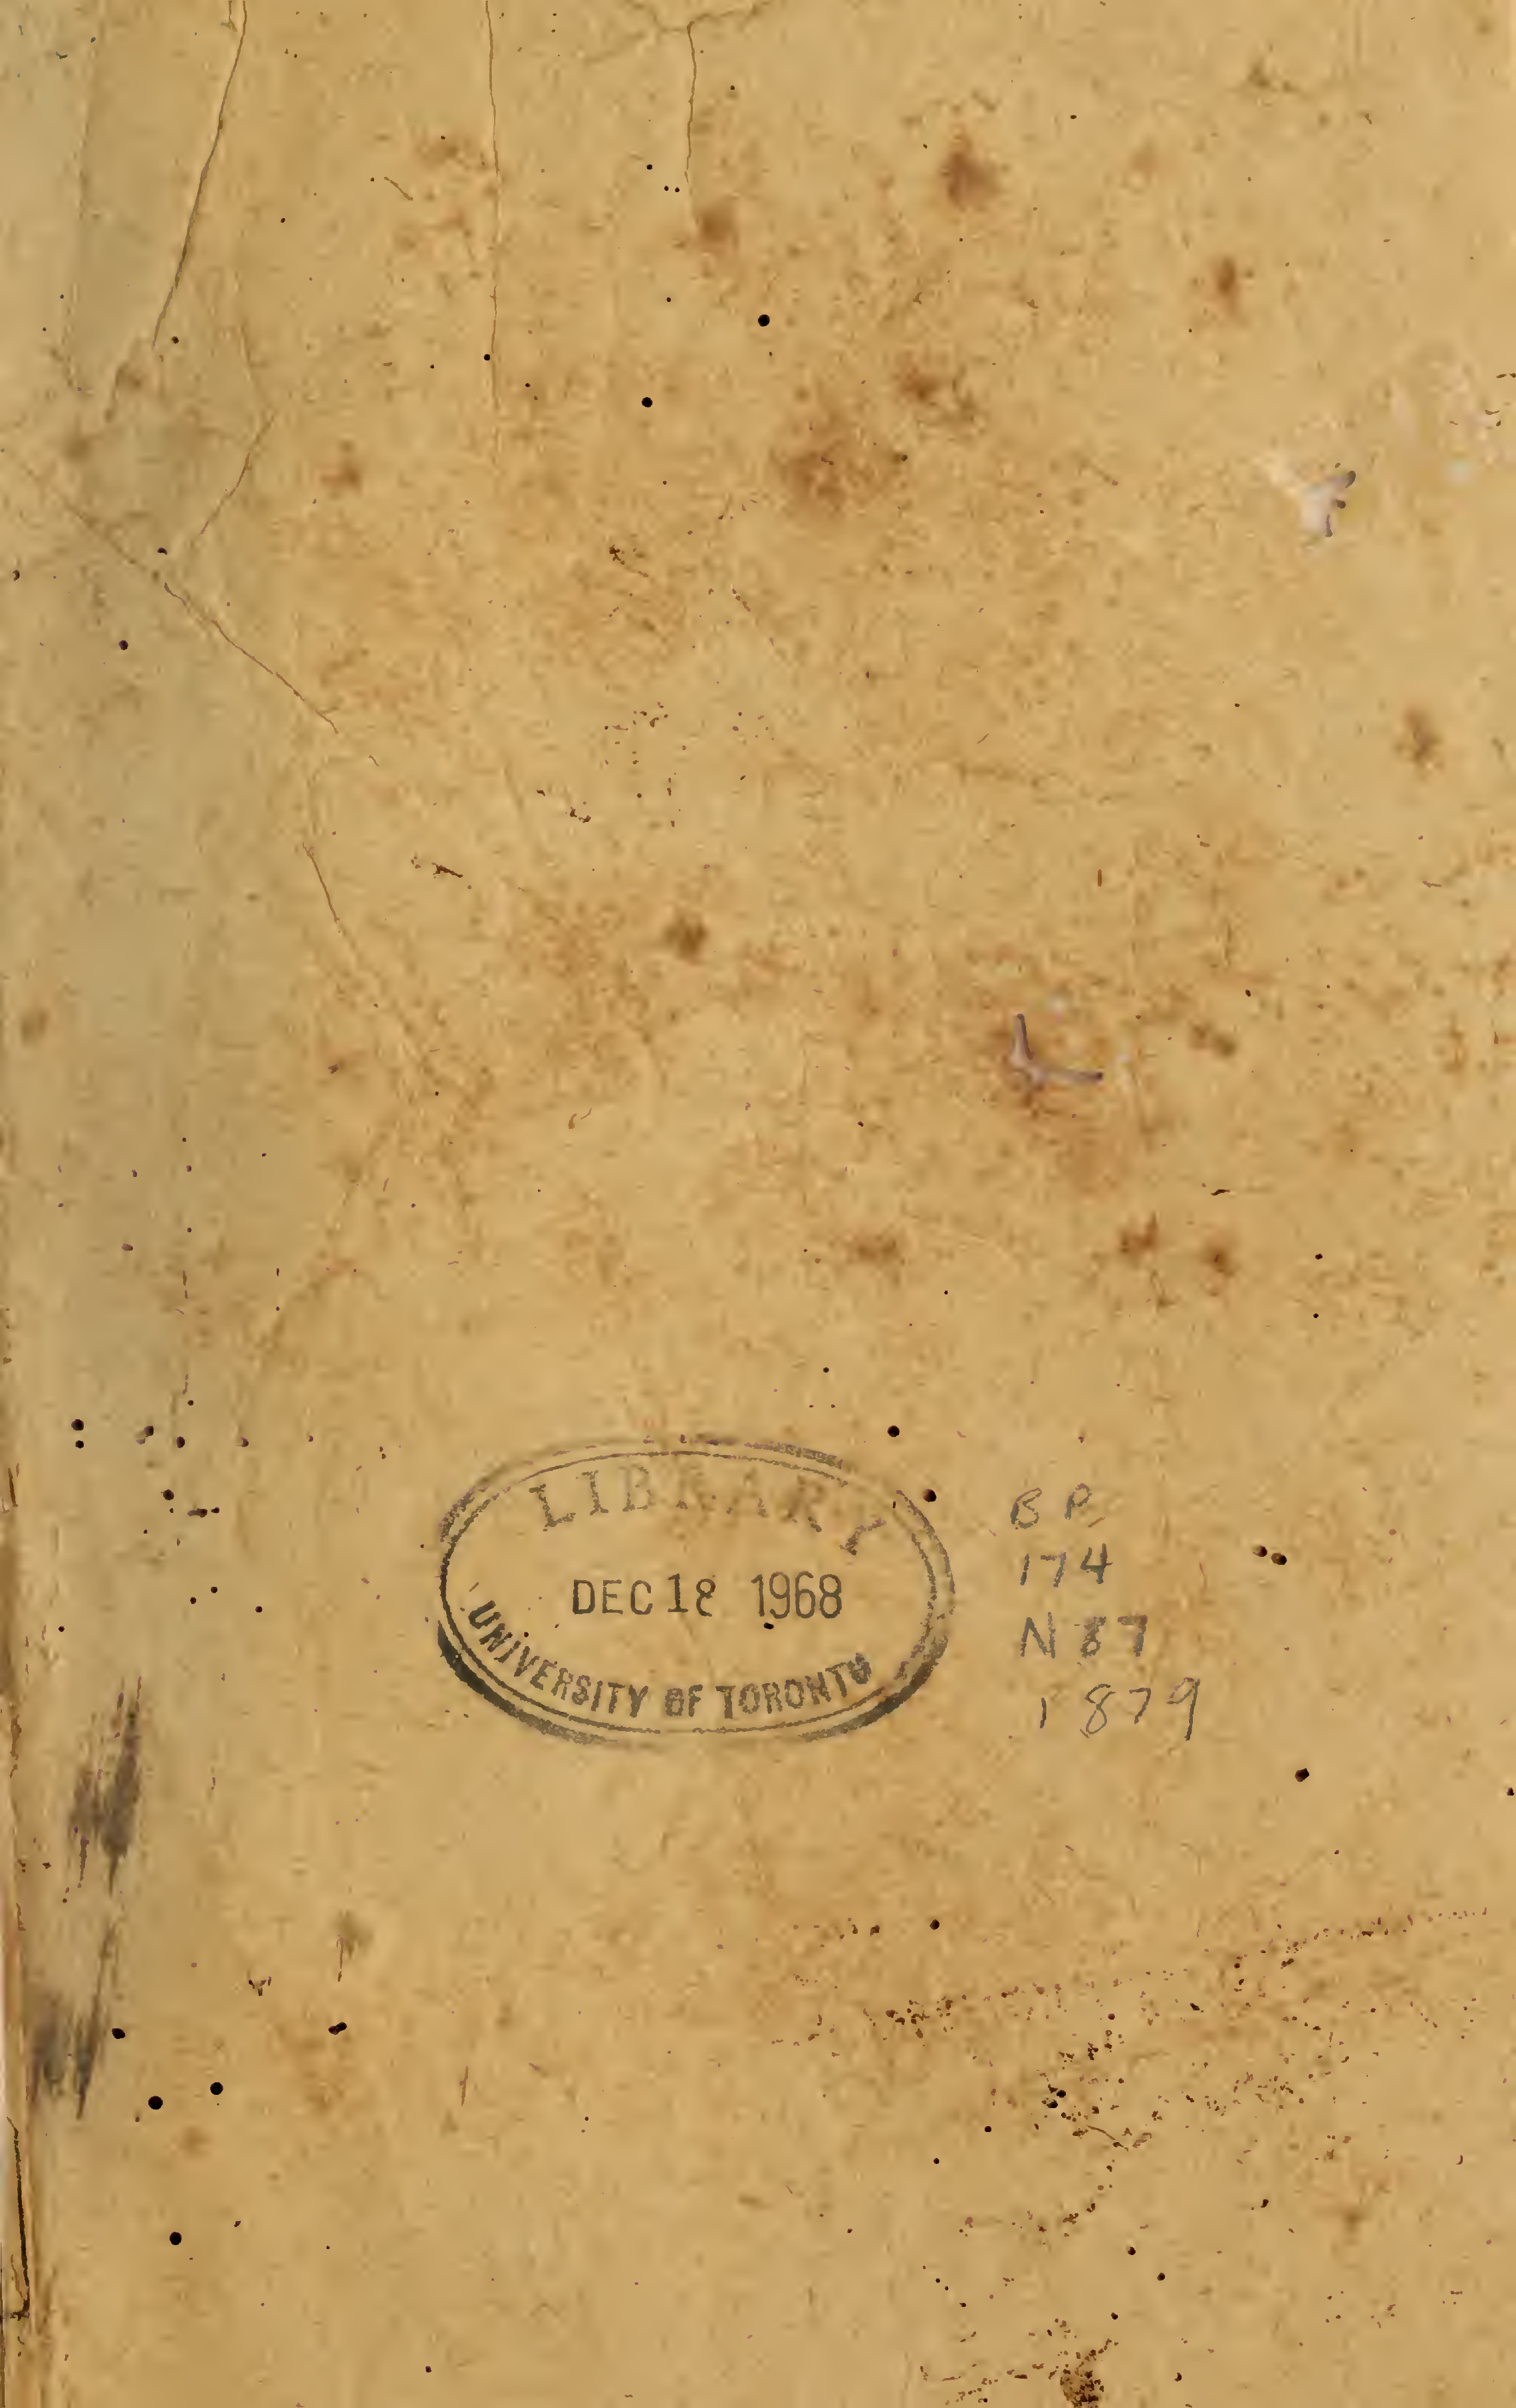 LIBRARY
DEC 18 1968
UNIVERSITY OF TORONTO
BP
174
N87
1879